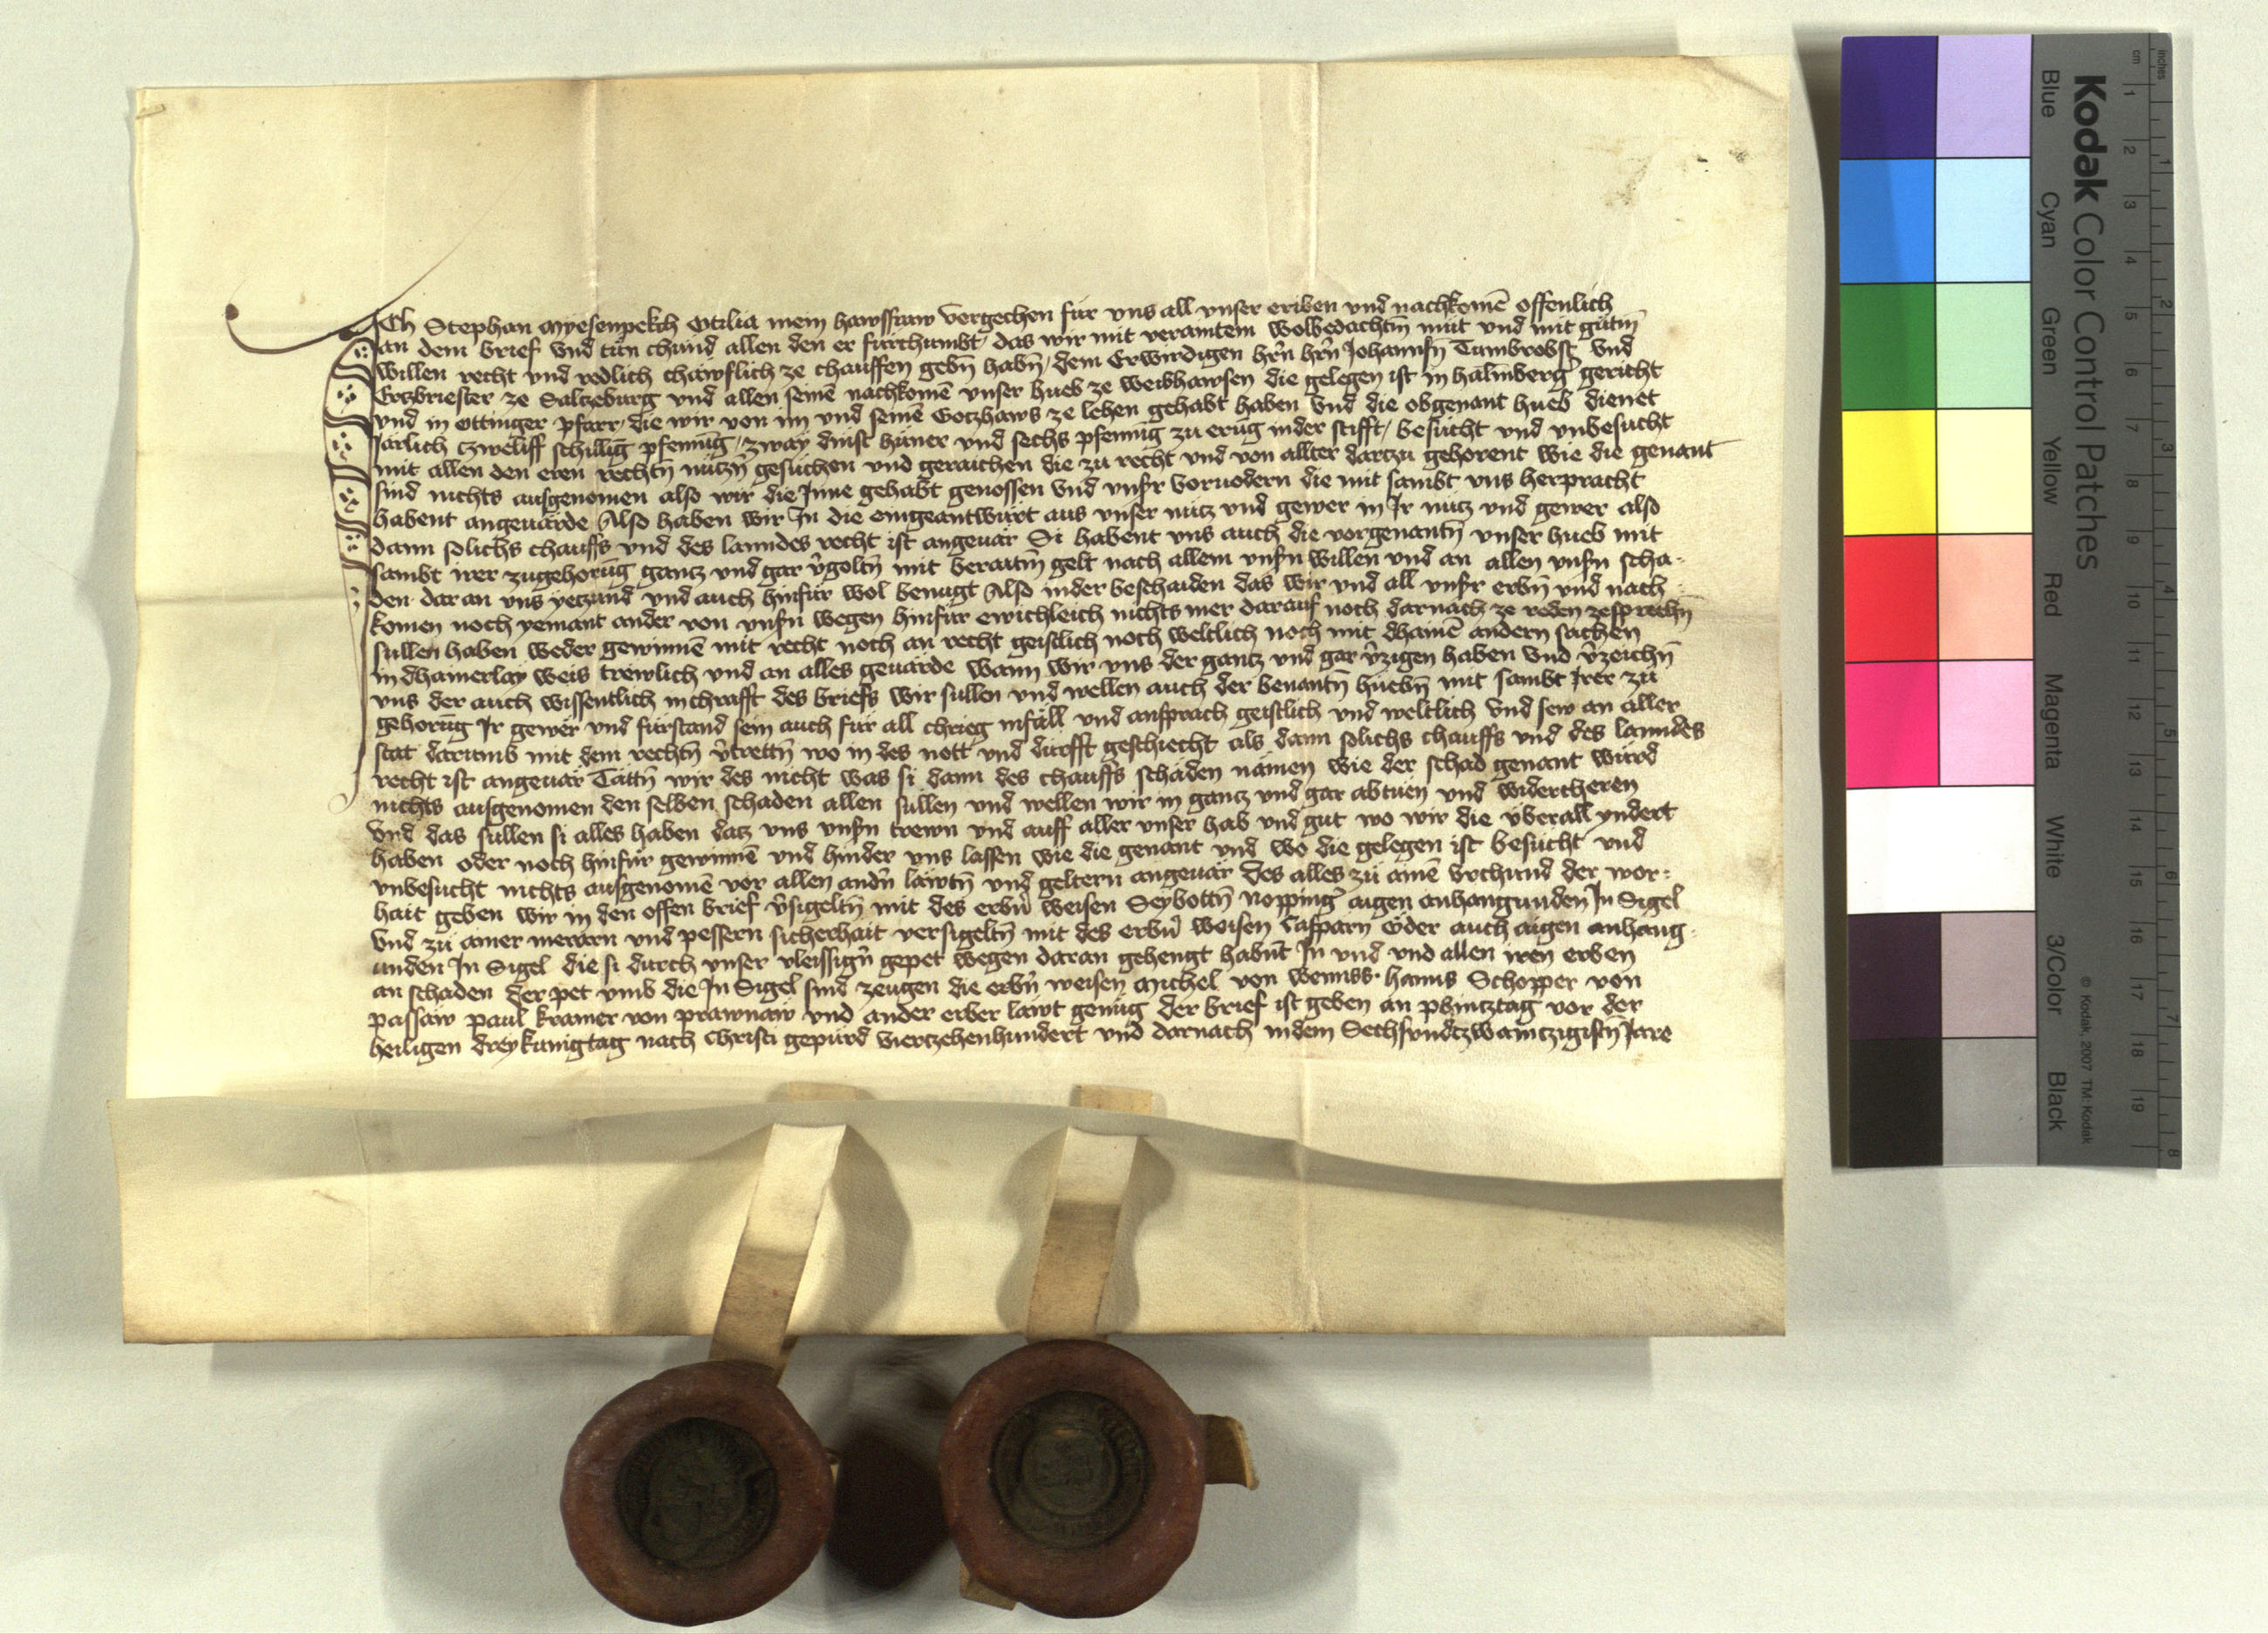 Ich Stephan Myesenpekch Otilia mein hawssfraw vergechen für uns all unser eriben und nachkomē offenlich
an dem brief und tün chund allen den er fürchumbt das wir mit veramtem wolbedachtm̄ müt und mit gütm̄
willen recht und redlich chäwflich ze chauffen gebn̄ habn̄ dem Erwirdigen hr̄n hr̄n Johannsn̄ Tumbrobst und
Ertzbriester ze Saltzeburg und allen seinē nachkomē unser hueb ze weibhawsen die gelegen ist in halmberg̕ gericht
und in Ottinger pfarr die wir von im und seinē Gotzhaws ze lehen gehabt haben und die obgenant hueb dienet
Järlich czweliff schilliḡ pfennīg zway dinst hüner und sechs pfennīg zu erūg in der stifft besücht und unbesucht
mit allen den eren rechtn̄ nützn̄ gesüchen und geraichen die zu recht und von allter dartzu gehorent wie die genant
sind nichts ausgenomen also wir die Inne gehabt genossen und unsr̄ vorvodern die mit sambt uns herpracht
habent angeuärde Also haben wir In die eingeantwürt aus unser nütz und gewer in Ir nütz und gewer also
dann solichs chauffs und des lanndes recht ist angeuär Si habent uns auch die vorgenantn̄ unser hueb mit
sambt irer zugehorūg gantz und gar v̄goltn̄ mit beraitm̄ gelt nach allem unsn̄ willen und an allen unsn̄ scha-
den daran uns yetzund und auch hinfür wol benügt Also in der beschaiden das wir und all unsr̄ erbn̄ und nach
komen noch yemant ander von unsn̄ wegen hinfür ewichleich nichts mer darauf noch darnach ze reden zesprechn̄
süllen haben weder gewinnē mit recht noch an recht geistlich noch weltlich noch mit dhainē andern sachen
in dhainerlay weis trewlich und an alles geuärde wann wir uns der gantz und gar v̄zigen haben und v̄zeichn̄
uns der auch wissentlich in chrafft des briefs wir süllen und wellen auch der benantn̄ huebn̄ mit sambt Irer zü
gehorūg Ir gewer und fürstand sein auch für all chrieg infäll und ansprach geistlich und weltlich und sew an aller
stat darumb mit dem rechtn̄ v̄trettn̄ wo in des nott und dürfft geschiecht als dann solichs chauffs und des lanndes
recht ist angeuär Tättn̄ wir des nicht was si dann des chauffs schäden nämen wie der schad genant würd
nichts ausgenomen den selben schaden allen süllen und wellen wir in gantz und gar abtuen und widercheren
und das süllen si alles haben datz uns unsn̄ trewn und auff aller unser hab und güt wo wir die überall yndert
haben oder noch hinfür gewinnē und hinder uns lassen wie die genant und wo die gelegen ist besücht und
unbesucht nichts ausgenomē vor allen andn̄ läwtn̄ und geltern angeuär Des alles zü ainē Urchund der wor-
hait geben wir in den offen brief v̄sigeltn̄ mit des erbn̄ weisen Seyboltn̄ Nopping̕ aigen anhangunden In Sigel
und zü ainer merarn und pessern sicherhait versigeltn̄ mit des erbn̄ weisen Casparn Öder auch aigen anhang-
unden In Sigel die si durch unser vleissign̄ gepet wegen daran gehengt habn̄t In und und allen iren erben
an schaden der pet umb die In Sigel sind zeugen die erbn̄ weisen Michel von Wennss hanns Schopper von
passaw paul kramer von prawnaw und ander erber läwt genüg der brief ist geben an phintztag vor der
heiligen dreykünigtag nach Christi gepürd viertzehenhundert und darnach in dem Sechsundtzwaintzigistn̄ Jare
Kodak Color Control Patches
Blue Cyan Green Yellow Red Magenta White 3/Color Black
© Kodak, 2007 TM: Kodak
inches 1 2 3 4 5 6 7 8
cm 1 2 3 4 5 6 7 8 9 10 11 12 13 14 15 16 17 18 19